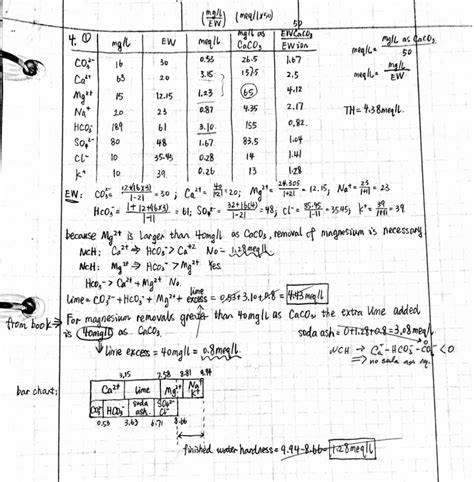 (mg/L / EW) (meq/L x 50)
4. ① mg/L EW meq/L mg/L as CaCO3 EW CaCO3 / EW ion
CO3²⁻ 16 30 0.53 26.5 1.67
Ca²⁺ 63 20 3.15 157.5 2.5
Mg²⁺ 15 12.15 1.23 65 4.12
Na⁺ 20 23 0.87 4.35 2.17
HCO3⁻ 189 61 3.10 155 0.82
SO4²⁻ 80 48 1.67 83.5 1.04
Cl⁻ 10 35.45 0.28 14 1.41
K⁺ 10 39 0.26 13 1.28
meq/L = mg/L as CaCO3 / 50
meq/L = mg/L / EW
TH = 4.38 meq/L
EW: CO3²⁻ = 12+(16x3) / |-2| = 30 ; Ca²⁺ = 40 / |2| = 20; Mg²⁺ = 24.305 / |+2| = 12.15, Na⁺ = 23 / |+1| = 23
HCO3⁻ = 1+12+(16x3) / |-1| = 61; SO4²⁻ = 32+16(4) / |-2| = 48; Cl⁻ = 35.45 / |-1| = 35.45; K⁺ = 39 / |+1| = 39
because Mg²⁺ is larger than 40mg/L as CaCO3, removal of magnesium is necessary
NCH: Ca²⁺ ⇒ HCO3⁻ > Ca²⁺ No = 1.28 meq/L
NCH: Mg²⁺ ⇒ HCO3⁻ > Mg²⁺ Yes
HCO3⁻ > Ca²⁺ + Mg²⁺ No.
Lime = CO3²⁻ + HCO3⁻ + Mg²⁺ + lime excess = 0.53 + 3.10 + 0.8 = 4.43 meq/L
from book ⇒ For magnesium removals greater than 40mg/L as CaCO3 the extra lime added
is 40mg/L as CaCO3
soda ash = 0+1.28+0.8 = 3.08 meq/L
↳ lime excess = 40mg/L = 0.8 meq/L
NCH → Ca - HCO3⁻ - CO3 < 0
⇒ no soda ash req.
bar chart:
3.15 7.58 8.81 9.94
Ca²⁺ Lime Mg²⁺ Na⁺ K⁺
CO3 HCO3⁻ soda ash. SO4²⁻ Cl⁻
0.53 3.63 6.71 8.66
finished water hardness = 9.94-8.66 = 1.28 meq/L